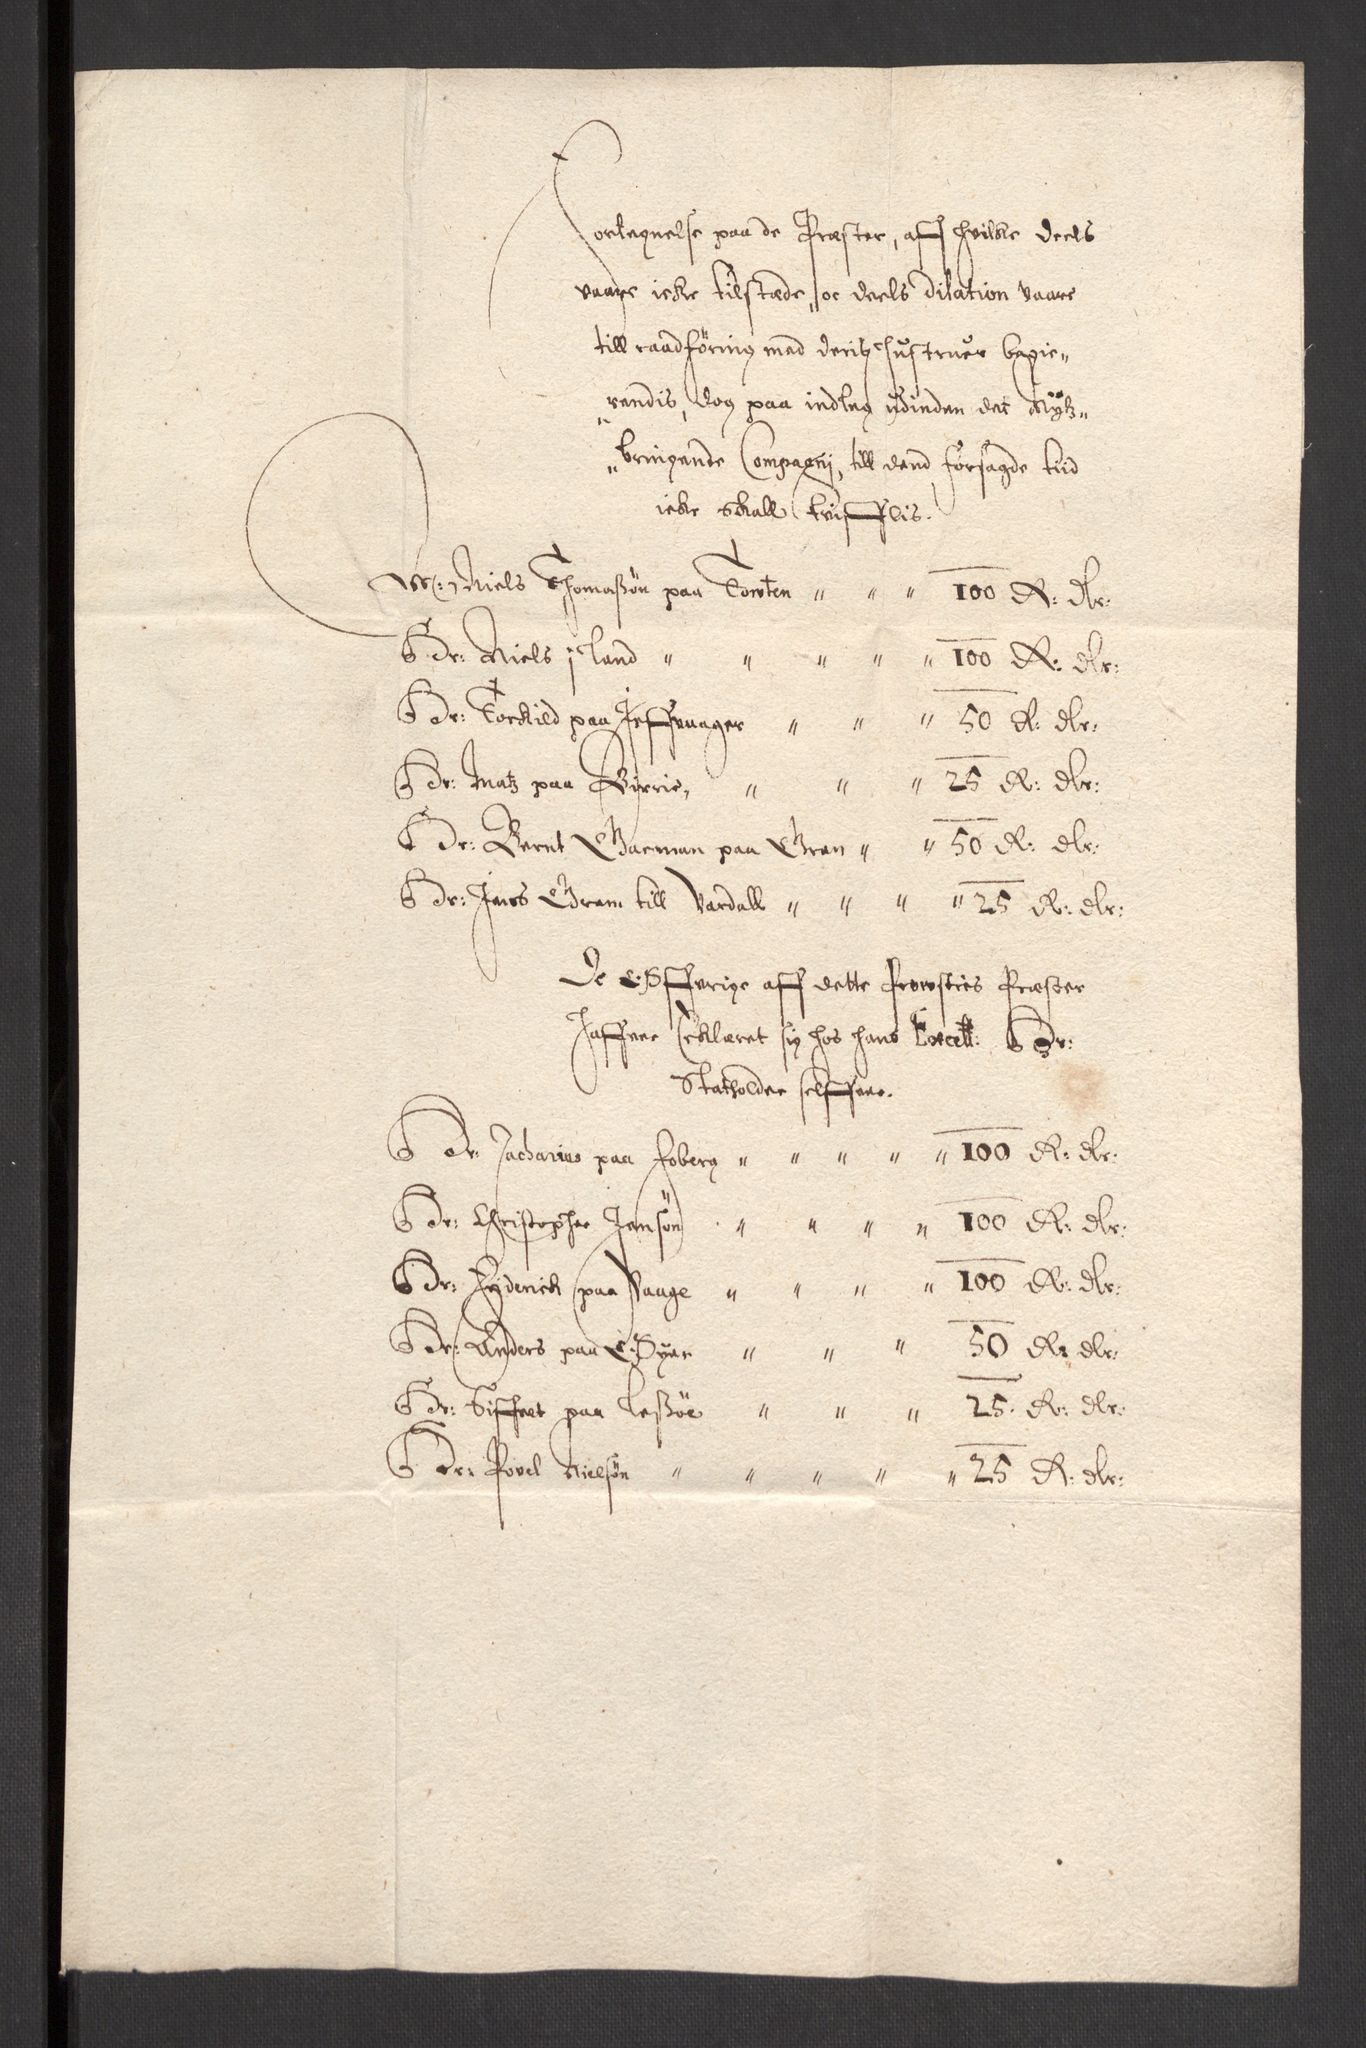 Fortegnelse paa de Præster, aff huilke deels
vaare icke tilstæde, oc deels dilation vaare
till raadföring med deris hustruer begie-
rendis, dog paa indleg udinden det Nytz-
bringende Compagnj, till dend forsagde tiid
icke skall tvifflis.
M: Niels Thomaßön paa Torsten " " " 100 R: dlr:
Hr: Niels i Land " " " " " 100 R: dlr:
Hr: Torkild paa Jeffnager " " " 50 R: dlr:
Hr: Matz paa Birrie, " " " 25 R: dlr:
Hr: Bernt Garman paa Gran " " 50 R: dlr:
Hr: Jens Gram till Vardall " " " " 25 R: dlr:
De Öffverige aff dette Provsties Præster
haffver erklæret sig hos hans Excell: Hr:
Statholder selffver.
Hr: Zacharias paa Foberg " " " " " 100 R: dlr:
Hr: Christopher Jensön " " " " 100 R: dlr:
Hr: Friderich paa Vaage " " " " 100 R: dlr:
Hr: Anders paa Öyer " " " 50 R: dlr:
Hr: Siffvert paa Leßöe " " " 25 R: dlr:
Hr: Povel Nielsön " " " " " 25 R: dlr: